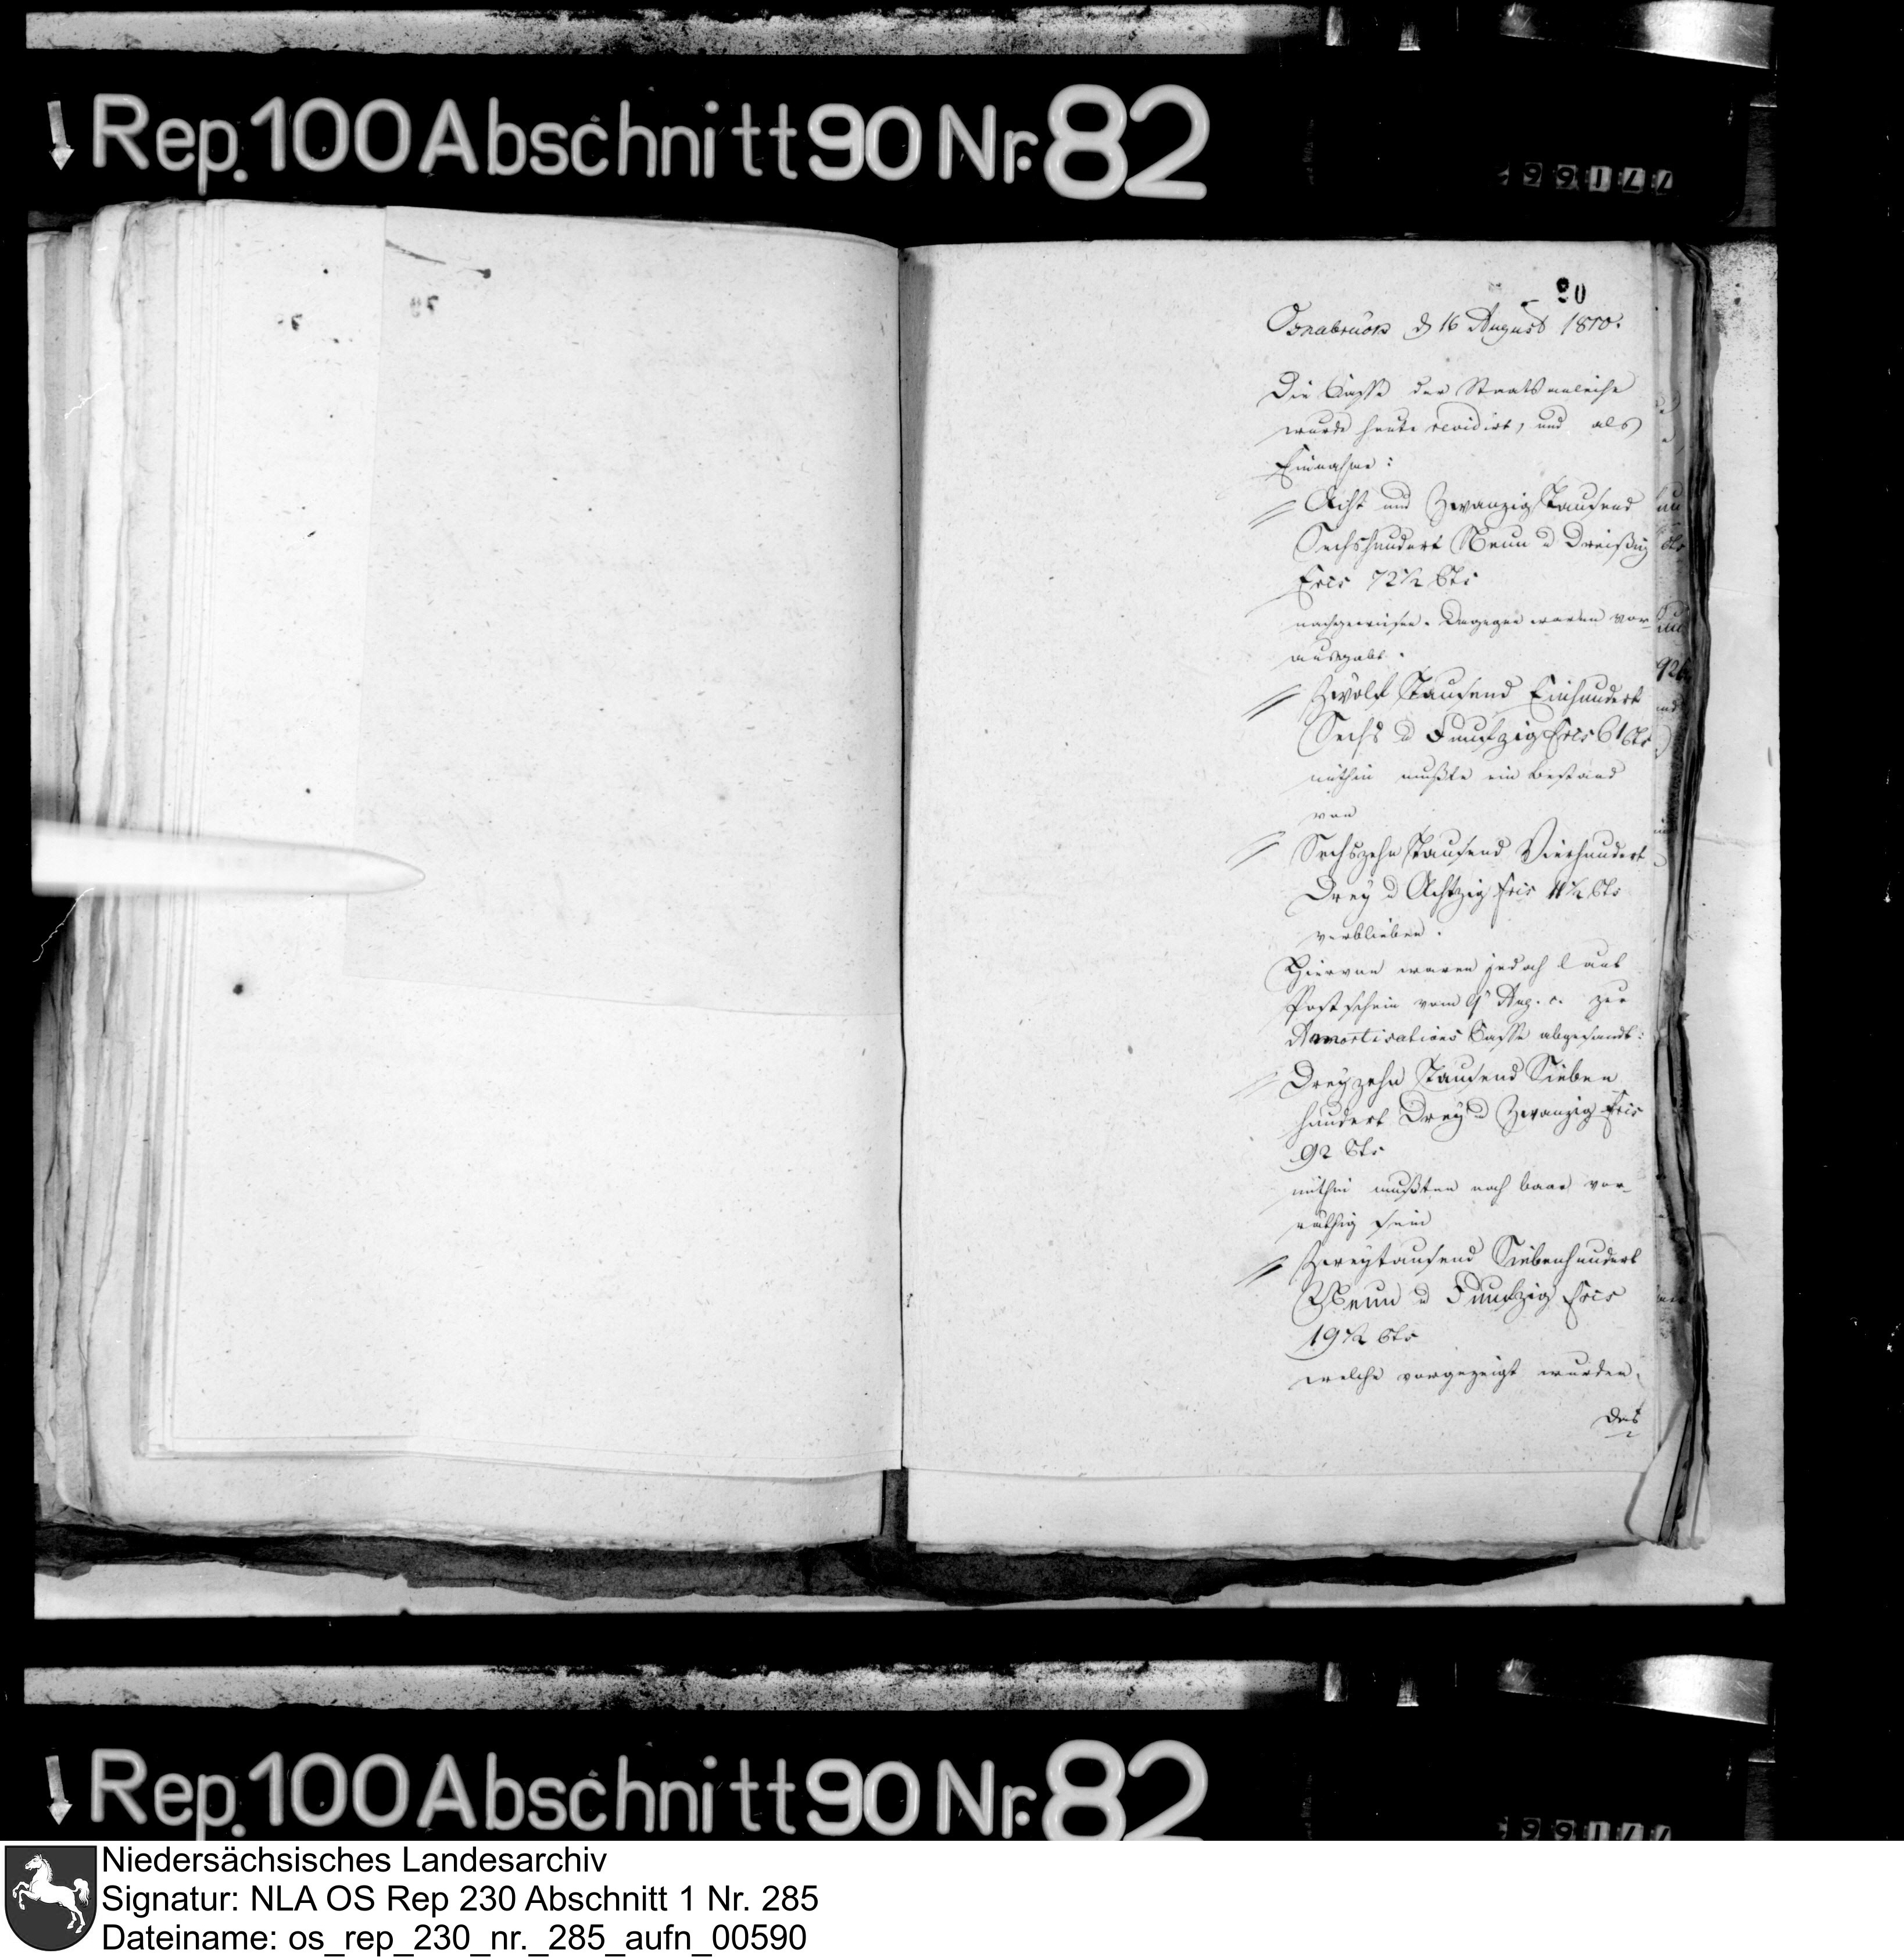 Rep. 100 Abschnitt 90 Nr. 82
80
Osnabrück d 16 August 1810.
Die Casse der Staatsanleihe
wurde heute revidirt, und als
Einnahme:
Acht und Zwanzig Tausend
Sechshundert Neun u Dreißig
Frcs 72½ Cts
nachgewiesen. Dagegen waren ver-
ausgabt.
Zwölf Tausend Einhundert
Sechs u Funfzig Frcs 61 Cts
mithin mußte ein Bestand
von
Sechszehn Tausend Vierhundert
Drey u Achtzig Frcs 11½ Cts
verblieben.
Hiervon waren jedoch laut
Postschein vom 9 Aug. c. zur
Amortisations Casse abgesandt:
Dreyzehn Tausend Sieben
hundert Drey u Zwanzig Frcs
92 Cts
mithin mußten noch baar vor-
räthig sein
Zweytausend Siebenhundert
Neun u Funfzig Frcs
19½ Cts
welche vorgezeigt wurden.
Das
Rep. 100 Abschnitt 90 Nr. 82
Niedersächsisches Landesarchiv
Signatur: NLA OS Rep 230 Abschnitt 1 Nr. 285
Dateiname: os_rep_230_nr._285_aufn_00590